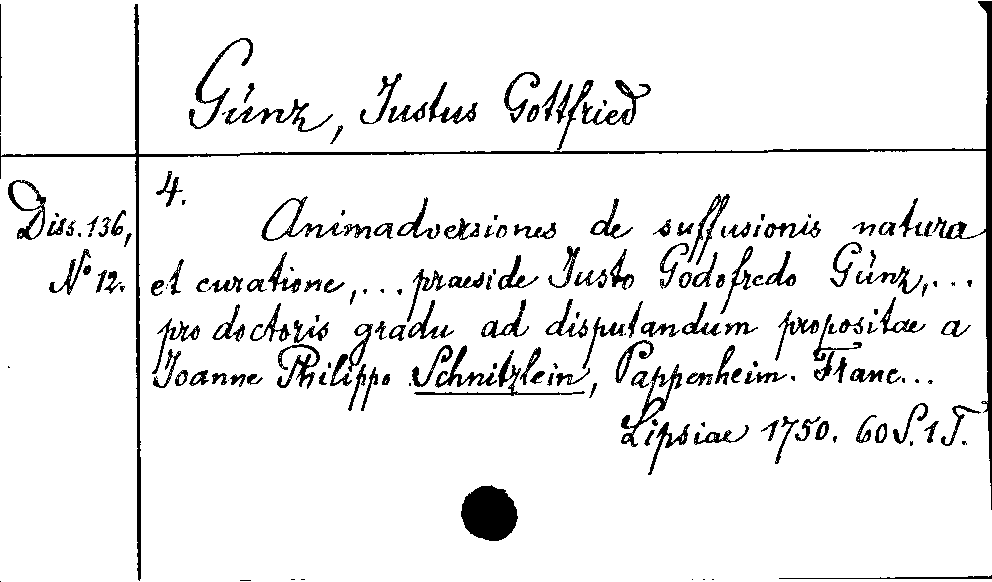 Günz, Iustus Gottfried
4.
Diss. 136,
No 12.
Animadversiones de suffusionis natura
et curatione, ... praeside Iusto Godofredo Günz, ...
pro doctoris gradu ad disputandum propositae a
Joanne Philippo Schnitzlein, Pappenheim. Franc...
Lipsiae 1750. 60 S. 1 T.